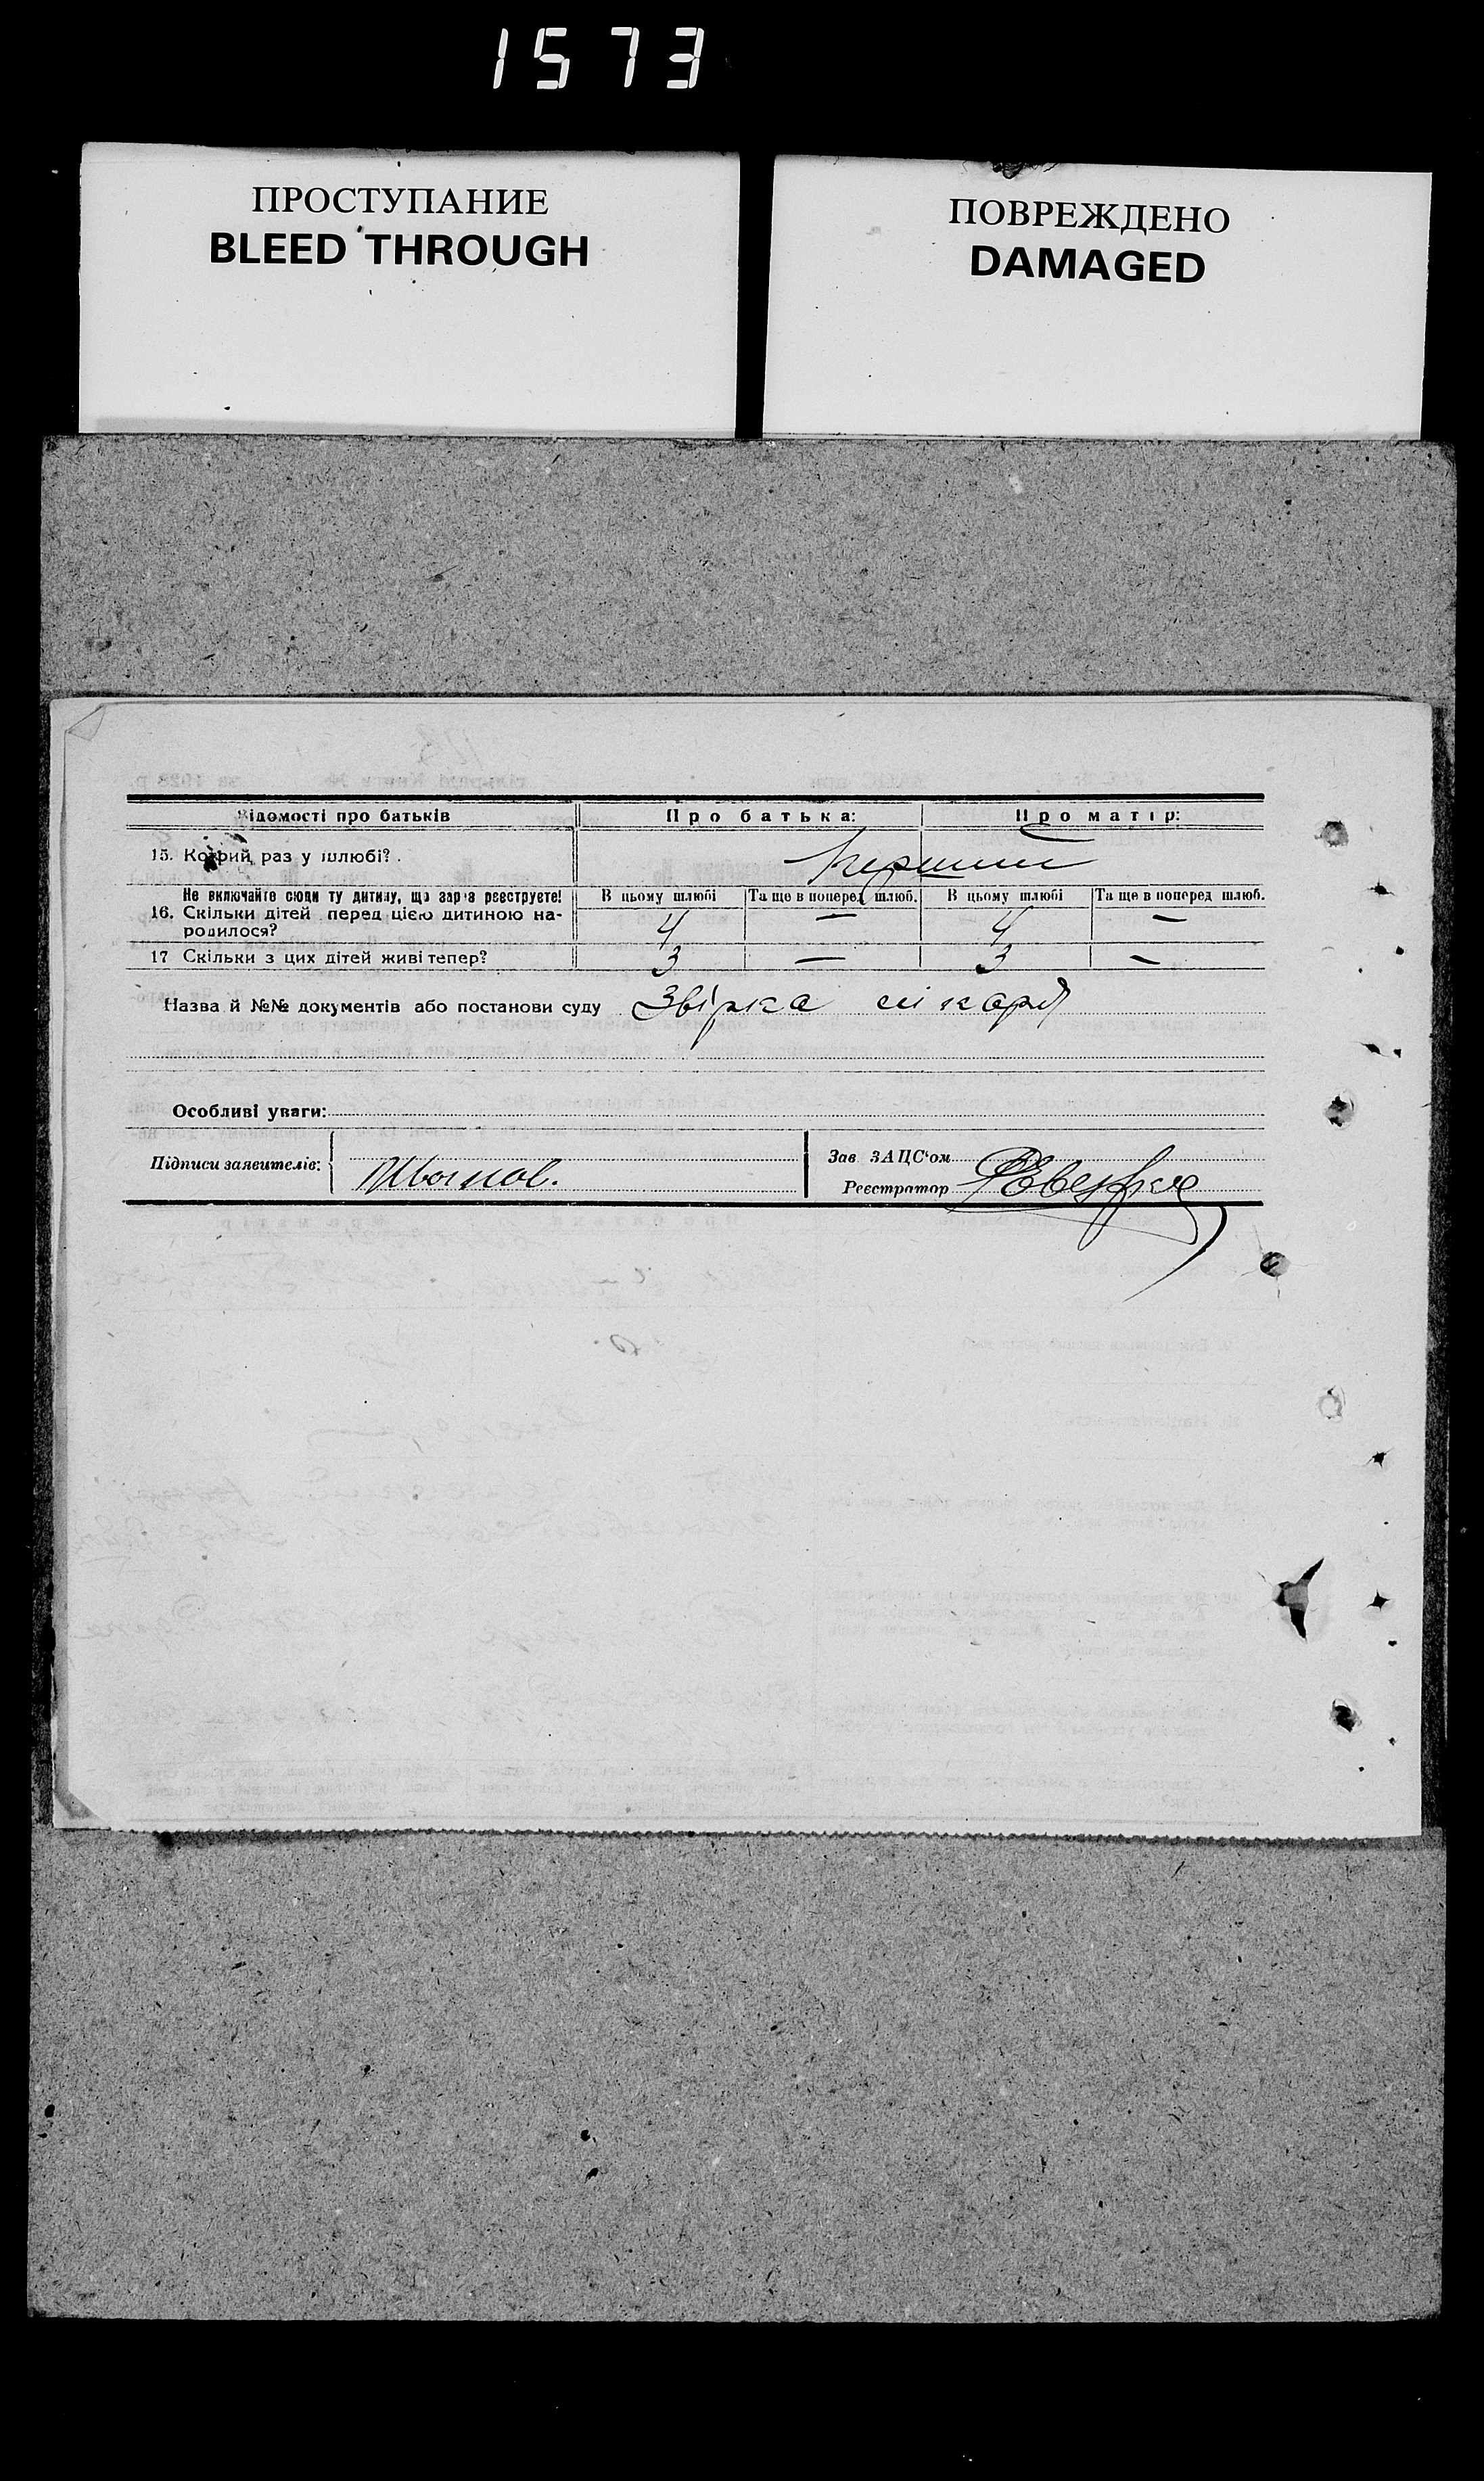 1573
ПРОСТУПАНИЕ
BLEED THROUGH
ПОВРЕЖДЕНО
DAMAGED
Відомості про батьків Про батька: Про матір:
15. Котрий раз у шлюбі? . Перший
Не включайте сюди ту дитину, що зараз реєструєте! В цьому шлюбі Та ще в поперед шлюб. В цьому шлюбі Та ще в поперед шлюб.
16. Скільки дітей перед цією дитиною на-
родилося? 4 — 4 —
17 Скільки з цих дітей живі тепер? 3 — 3 —
Назва й №№ документів або постанови суду Звірка лікаря
Особливі уваги:
Підписи заявителів: Зав ЗАЦС'ом
Реєстратор